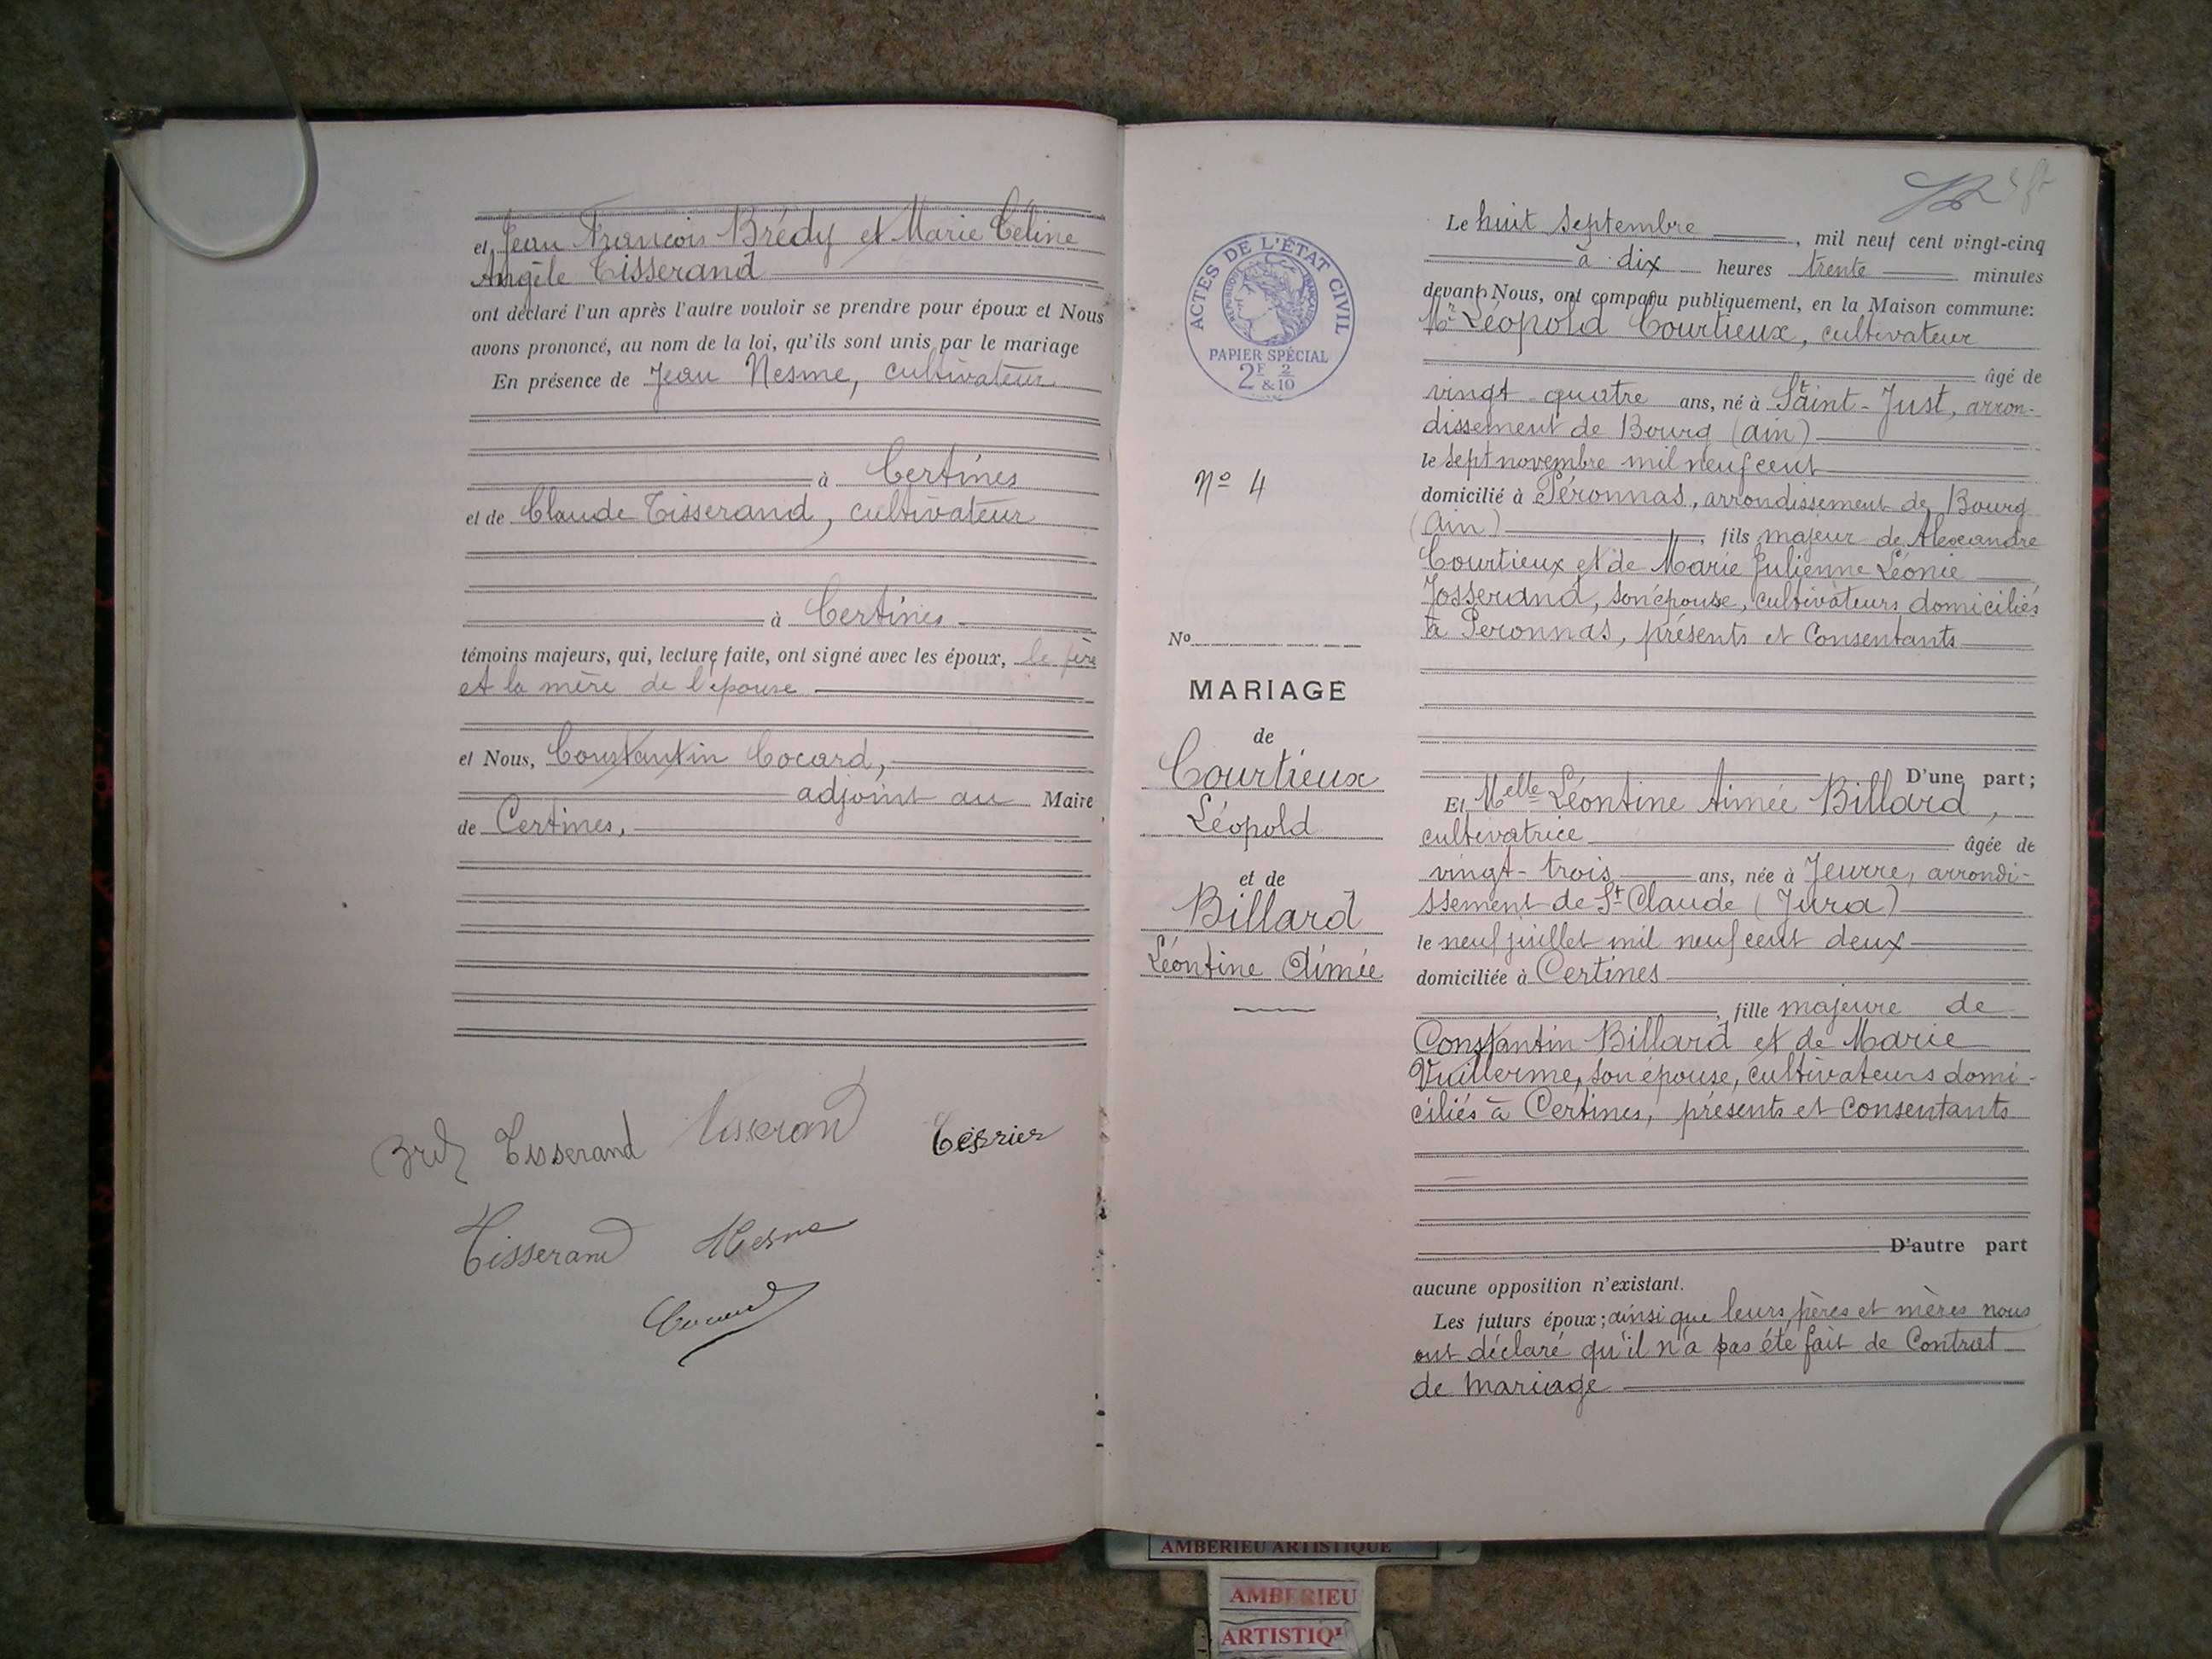 et Jean François Brédy et Marie Céline
Angèle Tisserand
ont déclaré l'un après l'autre vouloir se prendre pour époux et Nous
avons prononcé, au nom de la loi, qu'ils sont unis par le mariage
En présence de Jean Nesme, cultivateur
à Certines
et de Claude Tisserand, cultivateur
à Certines
témoins majeurs, qui, lecture faite, ont signé avec les époux, le père
et la mère de l'épouse
et Nous, Constantin Cocard,
adjoint au Maire
de Certines,
Tisserand Tisserand
Tisserand Nesme
ACTES DE L'ÉTAT CIVIL
RÉPUBLIQUE FRANÇAISE
PAPIER SPÉCIAL
2F 2
&10
Nº 4
Nº
MARIAGE
de
Courtieux
Léopold
et de
Billard
Léontine Aimée
Le huit Septembre, mil neuf cent vingt-cinq
à dix heures trente minutes
devant Nous, ont comparu publiquement, en la Maison commune:
Mr Léopold Courtieux, cultivateur
âgé de
vingt-quatre ans, né à Saint-Just, arron-
dissement de Bourg (Ain)
le sept novembre mil neuf cent
domicilié à Péronnas, arrondissement de Bourg
(Ain), fils majeur de Alexandre
Courtieux et de Marie Julienne Léonie
Josserand, son épouse, cultivateurs domiciliés
à Peronnas, présents et consentants
D'une part;
Et Melle Léontine Aimée Billard,
cultivatrice âgée de
vingt-trois ans, née à Jeurre, arrondi-
ssement de St Claude (Jura)
le neuf juillet mil neuf cent deux
domiciliée à Certines
, fille majeure de
Constantin Billard et de Marie
Vuillerme, son épouse, cultivateurs domi-
ciliés à Certines, présents et consentants
D'autre part
aucune opposition n'existant.
Les futurs époux; ainsi que leurs pères et mères nous
ont déclaré qu'il n'a pas été fait de Contrat
de mariage
AMBERIEU ARTISTIQUE
AMBERIEU
ARTISTIQ